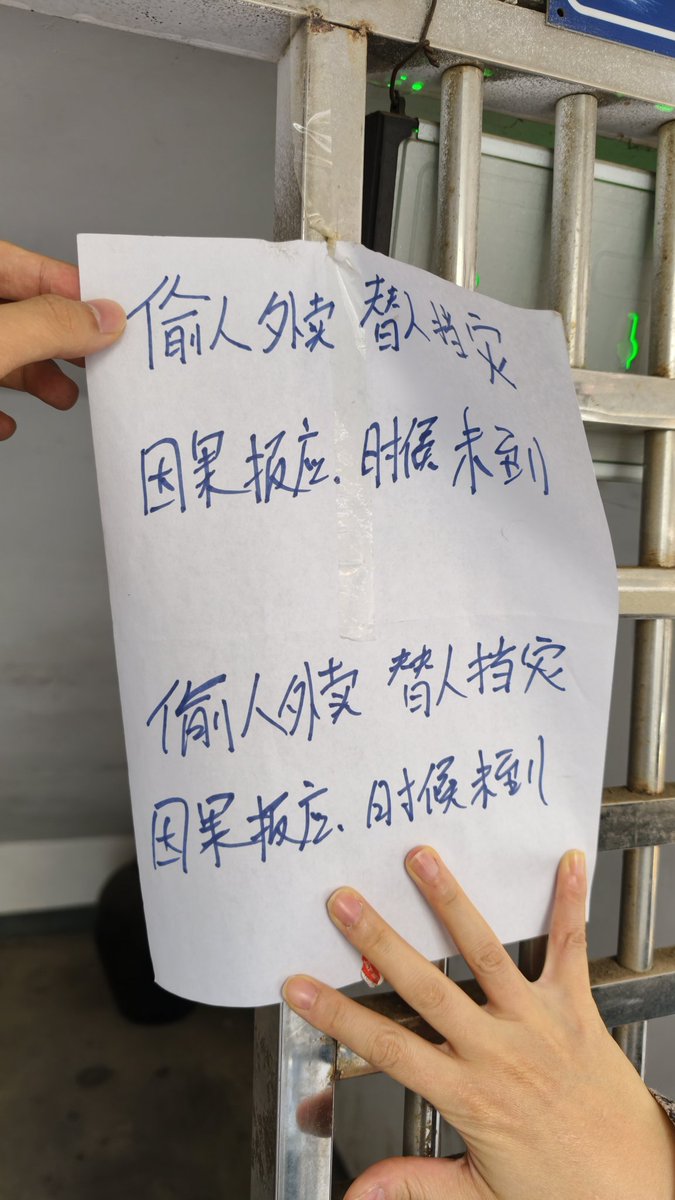 偷人外卖 替人挡灾
因果报应、时候未到
偷人外卖 替人挡灾
因果报应、时候未到